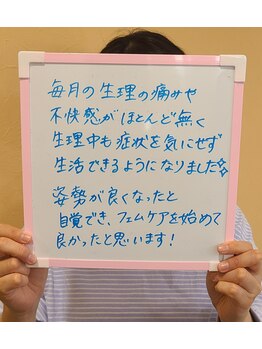 毎月の生理の痛みや
不快感がほとんど無く
生理中も症状を気にせず
生活できるようになりました☆
姿勢が良くなったと
自覚でき、フェムケアを始めて
良かったと思います!